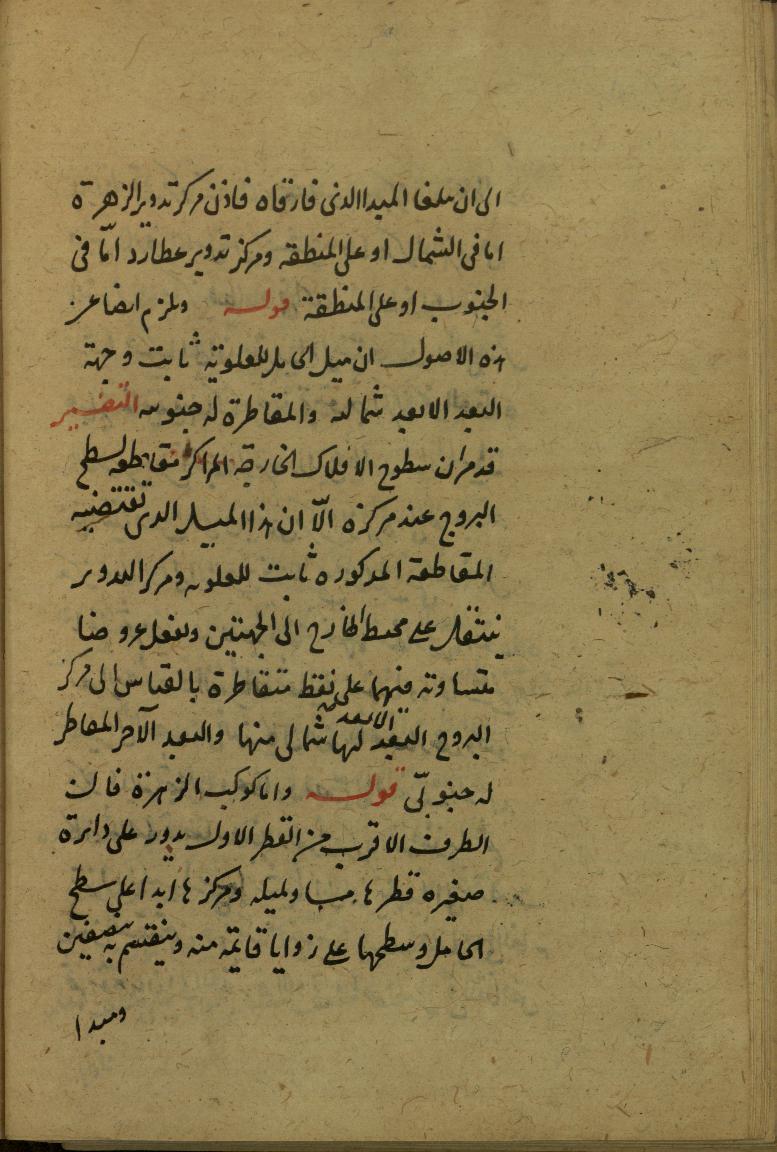 الى ان يبلغا المبدا الذى فارقاه فاذن مركز تدوير الزهرة
اما فى الشمال او على المنطقه ومركز تدوير عطارد امّا فى
الجنوب او على المنطقة قوله ويلزم ايضا عن
هذه الاصول ان ميل الحامل للعلويّه ثابت وجهة
البعد الابعد شماليه والمقاطرة له جنوبيه التفسير
قد مر ان سطوح الافلاك الخارجة المراكز مقاطعه لسطح
البروج عند مركزه الّا ان هذا الميل الذى تقتضيه
المقاطعة المذكوره ثابت للعلويه ومركز التدوير
ينتقل على محيط الخارج الى الجهتين ويفعل عروضا
متساويه فيهما على نقط متقاطرة بالقياس الى مركز
البروج البعد الابعد لها شمالى منها والبعد الآخر المقاطر
له جنوبىّ قوله واما كوكب الزهرة فان
الطرف الاقرب من القطر الاول يدور على دايرة
صغيره قطرها مساو لميله ومركزها ابدا على سطح
الحامل وسطحها على زوايا قايمة منه وينقسم به بنصفين
ومبدا